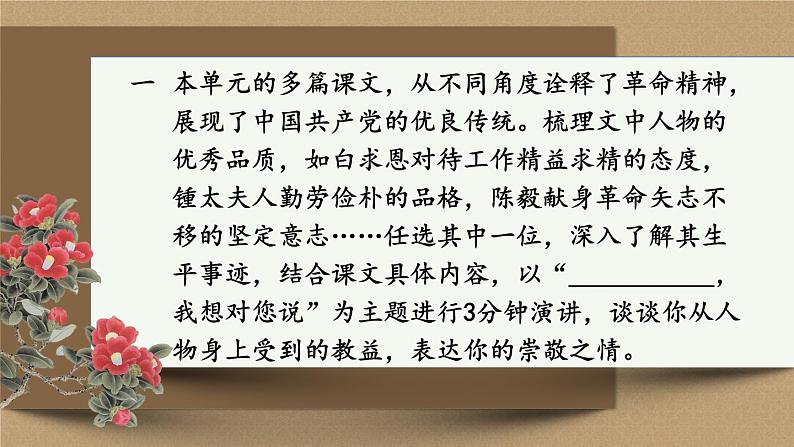 一 本单元的多篇课文，从不同角度诠释了革命精神，
展现了中国共产党的优良传统。梳理文中人物的
优秀品质，如白求恩对待工作精益求精的态度，
锺太夫人勤劳俭朴的品格，陈毅献身革命矢志不
移的坚定意志……任选其中一位，深入了解其生
平事迹，结合课文具体内容，以“__________，
我想对您说”为主题进行3分钟演讲，谈谈你从人
物身上受到的教益，表达你的崇敬之情。